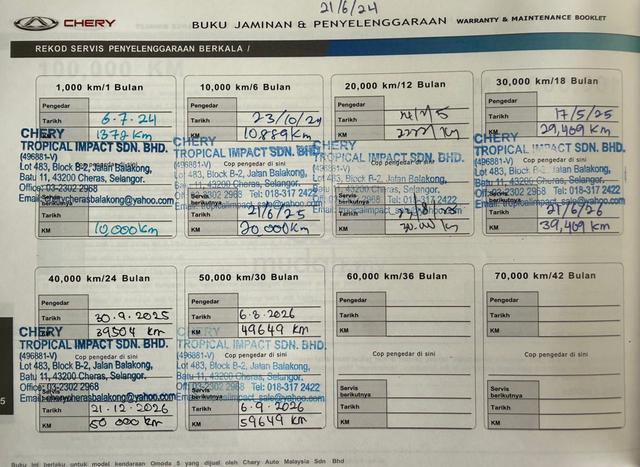 21/6/24
CHERY
BUKU JAMINAN & PENYELENGGARAAN WARRANTY & MAINTENANCE BOOKLET
REKOD SERVIS PENYELENGGARAAN BERKALA /
1,000 km/1 Bulan
Pengedar
Tarikh 6.7.24
KM 1372 Km
CHERY
TROPICAL IMPACT SDN. BHD.
(496881-V) Cop pengedar di sini
Lot 483, Block B-2, Jalan Balakong,
Batu 11, 43200 Cheras, Selangor.
Office: 03-2302 2968
Email: cherycherasbalakong@yahoo.com
Tarikh
KM 10,000Km
10,000 km/6 Bulan
Pengedar
Tarikh 23/10/24
KM 10,889Km
CHERY
TROPICAL IMPACT SDN. BHD.
(496881-V) Cop pengedar di sini
Lot 483, Block B-2, Jalan Balakong,
Batu 11, 43200 Cheras, Selangor.
03-2302 2968 Tel: 018-317 2422
Servis berikutnya
Email: tropicalimpact_sale@yahoo.com
Tarikh 21/6/25
KM 20,000Km
20,000 km/12 Bulan
Pengedar
Tarikh
KM
CHERY
TROPICAL IMPACT SDN. BHD.
(496881-V) Cop pengedar di sini
Lot 483, Block B-2, Jalan Balakong,
Batu 11, 43200 Cheras, Selangor.
03-2302 2968 Tel: 018-317 2422
Servis berikutnya
Email: tropicalimpact_sale@yahoo.com
Tarikh
KM
30,000 km/18 Bulan
Pengedar
Tarikh 17/5/25
KM 29,469 Km
CHERY
TROPICAL IMPACT SDN. BHD.
(496881-V) Cop pengedar di sini
Lot 483, Block B-2, Jalan Balakong,
Batu 11, 43200 Cheras, Selangor.
Office: 03-2302 2968 Tel: 018-317 2422
Servis berikutnya
Email: tropicalimpact_sale@yahoo.com
Tarikh 21/6/26
KM 39,469 Km
40,000 km/24 Bulan
Pengedar
Tarikh 30.9.2025
KM 39504 km
CHERY
TROPICAL IMPACT SDN. BHD.
(496881-V) Cop pengedar di sini
Lot 483, Block B-2, Jalan Balakong,
Batu 11, 43200 Cheras, Selangor.
Office: 03-2302 2968
Email: cherycherasbalakong@yahoo.com
Tarikh 21.12.2026
KM 50 000 km
50,000 km/30 Bulan
Pengedar
Tarikh 6.8.2026
KM 49649 km
CHERY
TROPICAL IMPACT SDN. BHD.
(496881-V) Cop pengedar di sini
Lot 483, Block B-2, Jalan Balakong,
Batu 11, 43200 Cheras, Selangor.
Office: 03-2302 2968 Tel: 018-317 2422
Servis berikutnya
Email: tropicalimpact_sale@yahoo.com
Tarikh 6.9.2026
KM 59649 km
60,000 km/36 Bulan
Pengedar
Tarikh
KM
Cop pengedar di sini
Servis berikutnya
Tarikh
KM
70,000 km/42 Bulan
Pengedar
Tarikh
KM
Cop pengedar di sini
Servis berikutnya
Tarikh
KM
5
Buku ini berlaku untuk model kendaraan Omoda 5 yang dijuel oleh Chery Auto Malaysia Sdn Bhd